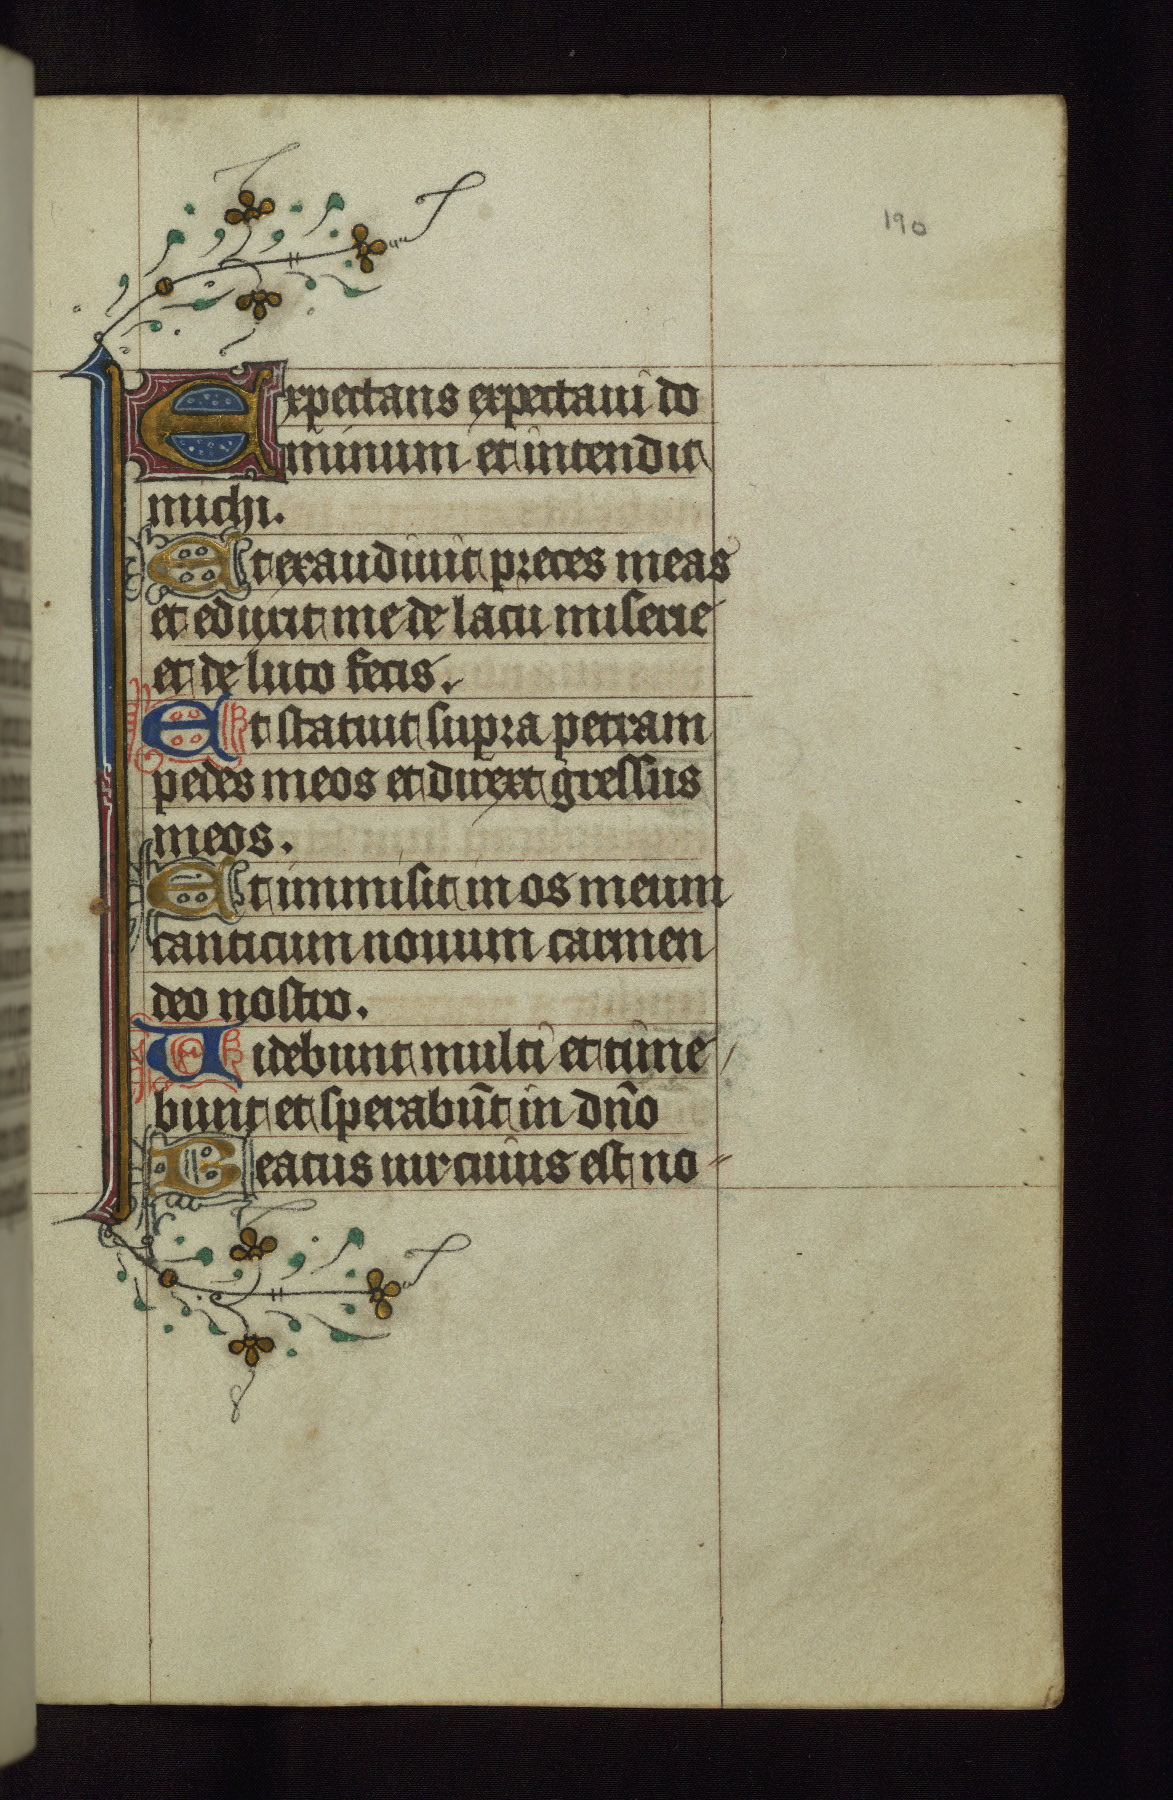 190
Expectans expectaui do
minum et intendit
michi.
Et exaudiuit preces meas
et eduxit me de lacu miserie
et de luto fecis.
Et statuit supra petram
pedes meos et direxit gressus
meos.
Et immisit in os meum
canticum nouum carmen
deo nostro.
Uidebunt multi et time
bunt et sperabūt in dn̄o
Beatus uir cuius est no